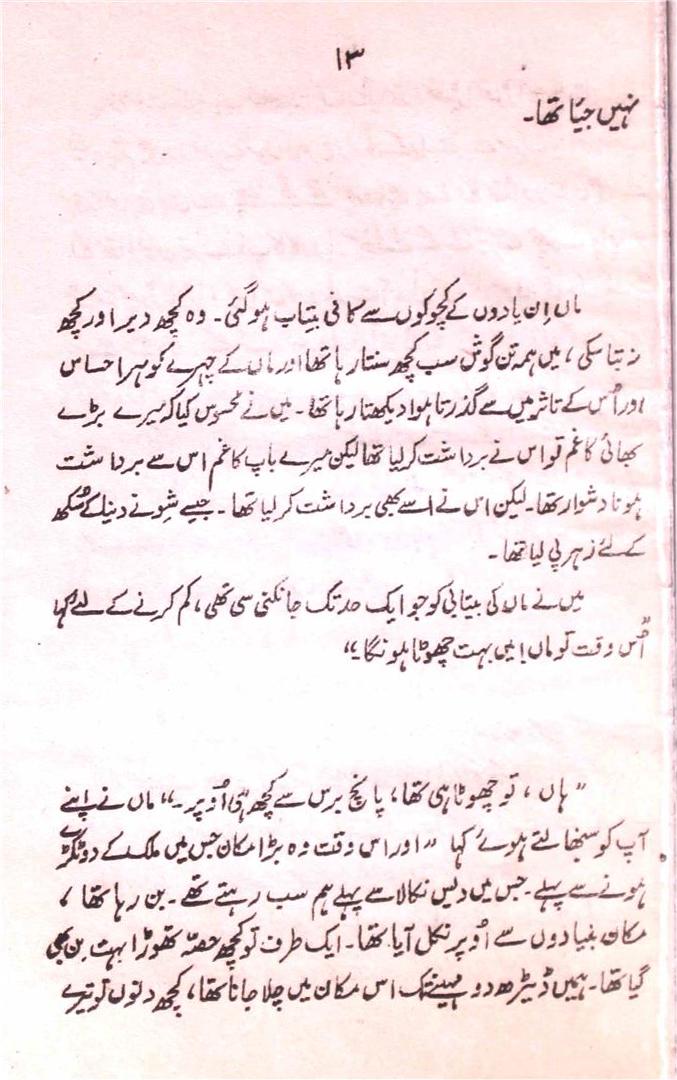 ۱۳
نہیں جیا تھا۔
ماں اِن یادوں کے کچوکوں سے کافی بیتاب ہو گئی۔ وہ کچھ دیر اور کچھ
نہ بتا سکی، میں ہمہ تن گوش سب کچھ سنتا رہا تھا اور ماں کے چہرے کو ہر احساس
اور اُس کے تاثر میں سے گذرتا ہوا دیکھتا رہا تھا۔ میں نے محسوس کیا کہ میرے بڑے
بھائی کا غم تو اس نے برداشت کر لیا تھا لیکن میرے باپ کا غم اس سے برداشت
ہونا دشوار تھا۔ لیکن اس نے اسے بھی برداشت کر لیا تھا۔ جیسے شِو نے دنیا کے سُکھ
کے لئے زہر پی لیا تھا۔
میں نے ماں کی بیتابی کو جو ایک حد تک جانکنی سی تھی، کم کرنے کے لئے کہا
”اُس وقت تو ماں! میں بہت چھوٹا ہونگا۔“
”ہاں، تو چھوٹا ہی تھا، پانچ برس سے کچھ ہی اُوپر۔“ ماں نے اپنے
آپ کو سنبھالتے ہوئے کہا ”اور اس وقت وہ بڑا مکان جس میں ملک کے دو ٹکڑے
ہونے سے پہلے۔ جس میں دیس نکالا سے پہلے ہم سب رہتے تھے۔ بن رہا تھا،
مکان بنیادوں سے اُوپر نکل آیا تھا۔ ایک طرف تو کچھ حصّہ تھوڑا بہت بن بھی
گیا تھا۔ ہمیں ڈیڑھ دو مہینے تک اس مکان میں چلا جانا تھا، کچھ دنوں تو تیرے